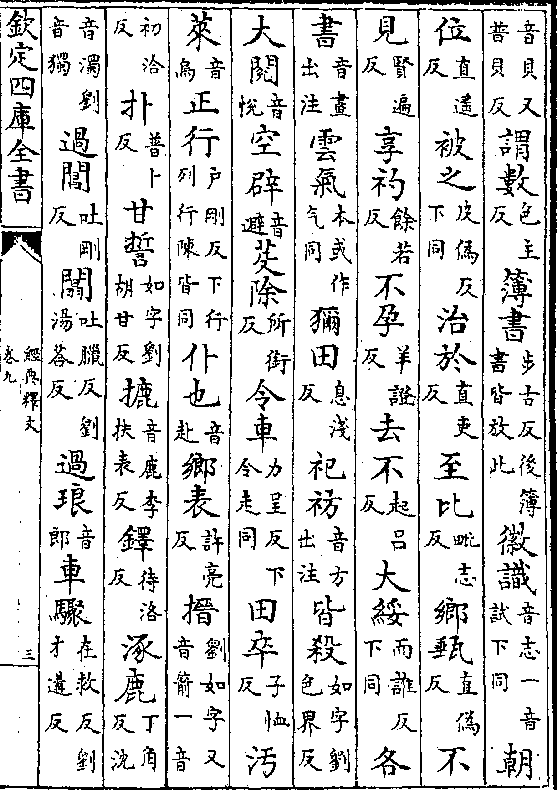 音貝又普貝反謂數色主反簿書步古反後簿書皆放此徽識音志一音試下同朝
位直遥反被之皮偽反下同治於直吏反至比毗志反鄉甀直偽反不
見賢遍反享礿餘若反不孕羊證反去不起吕反大綏而誰反下同各
書音畫出注雲氣本或作气同獮田息淺反祀祊音方出注皆殺如字劉色界反
大閱音悅空辟音避芟除所銜反令車力呈反下令走同田卒子恤反汚
萊音烏正行戸剛反下行列行陳皆同仆也音赴鄉表許亮反搢劉如字又音箭一音
初洽反扑普卜反甘誓如字劉胡甘反摝音鹿李扶表反鐸待洛反涿鹿丁角反沈
音濁劉音獨過閶吐剛反闒吐臘反劉湯荅反過琅音郎車驟在救反劉才遘反
欽定四庫全書
經典釋文
卷九
三